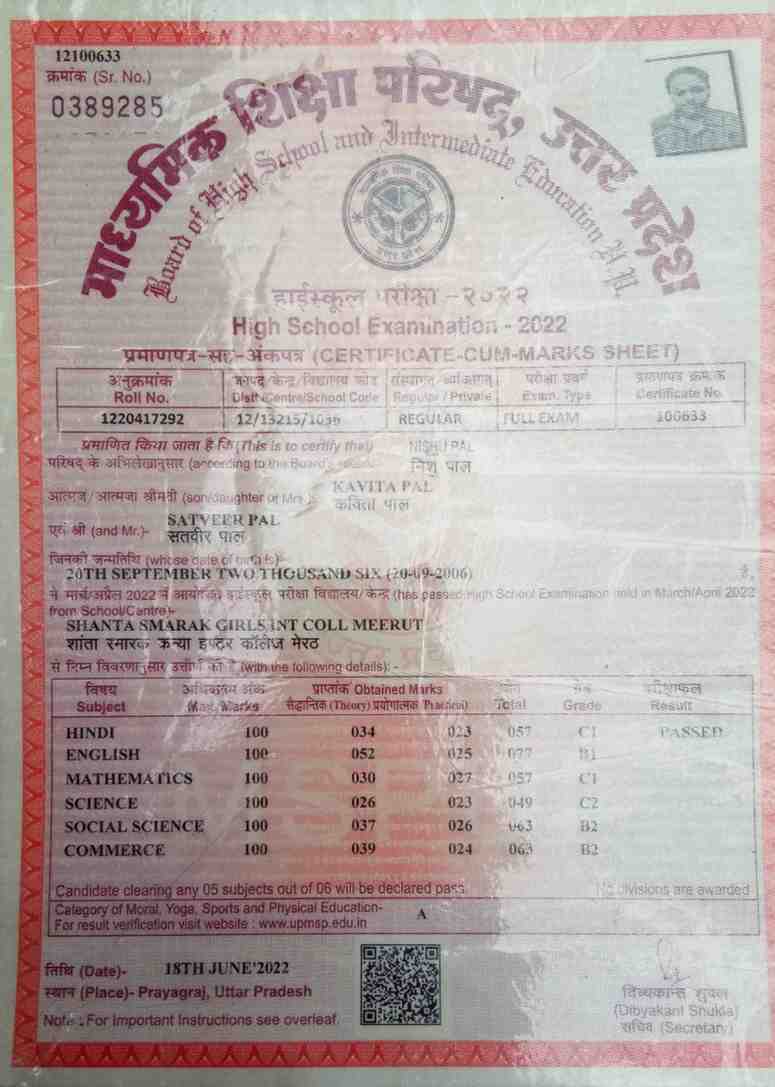 12100633
क्रमांक (Sr. No.)
0389285
माध्यमिक शिक्षा परिषद्, उत्तर प्रदेश
Board of High School and Intermediate Education U.P.
हाईस्कूल परीक्षा - २०२२
High School Examination - 2022
प्रमाणपत्र-सह-अंकपत्र (CERTIFICATE-CUM-MARKS SHEET)
अनुक्रमांक जनपद/केन्द्र/विद्यालय कोड संस्थागत/व्यक्तिगत परीक्षा प्रवर्ग प्रमाणपत्र क्रमांक
Roll No. Distt./Centre/School Code Regular / Private Exam. Type Certificate No.
1220417292 12/13215/1036 REGULAR FULL EXAM 100633
प्रमाणित किया जाता है कि (This is to certify that) NISHU PAL
परिषद् के अभिलेखानुसार (according to the Board's records) निशू पाल
KAVITA PAL
आत्मज/आत्मजा श्रीमती (son/daughter of Mrs.)- कविता पाल
SATVEER PAL
एवं श्री (and Mr.)- सतवीर पाल
जिनकी जन्मतिथि (whose date of birth is)-
20TH SEPTEMBER TWO THOUSAND SIX (20-09-2006) है,
ने मार्च/अप्रैल 2022 में आयोजित हाईस्कूल परीक्षा विद्यालय/केन्द्र (has passed High School Examination held in March/April 2022
from School/Centre)-
SHANTA SMARAK GIRLS INT COLL MEERUT
शांता स्मारक कन्या इण्टर कॉलेज मेरठ
से निम्न विवरणानुसार उत्तीर्ण की है (with the following details): -
विषय अधिकतम अंक प्राप्तांक Obtained Marks योग ग्रेड परीक्षाफल
Subject Max. Marks सैद्धान्तिक (Theory) प्रयोगात्मक (Practical) Total Grade Result
HINDI 100 034 023 057 C1 PASSED
ENGLISH 100 052 025 077 B1
MATHEMATICS 100 030 027 057 C1
SCIENCE 100 026 023 049 C2
SOCIAL SCIENCE 100 037 026 063 B2
COMMERCE 100 039 024 063 B2
Candidate clearing any 05 subjects out of 06 will be declared pass. No divisions are awarded
Category of Moral, Yoga, Sports and Physical Education- A
For result verification visit website : www.upmsp.edu.in
तिथि (Date)- 18TH JUNE'2022
स्थान (Place)- Prayagraj, Uttar Pradesh
Note : For Important Instructions see overleaf.
दिव्यकान्त शुक्ल
(Dibyakant Shukla)
सचिव (Secretary)